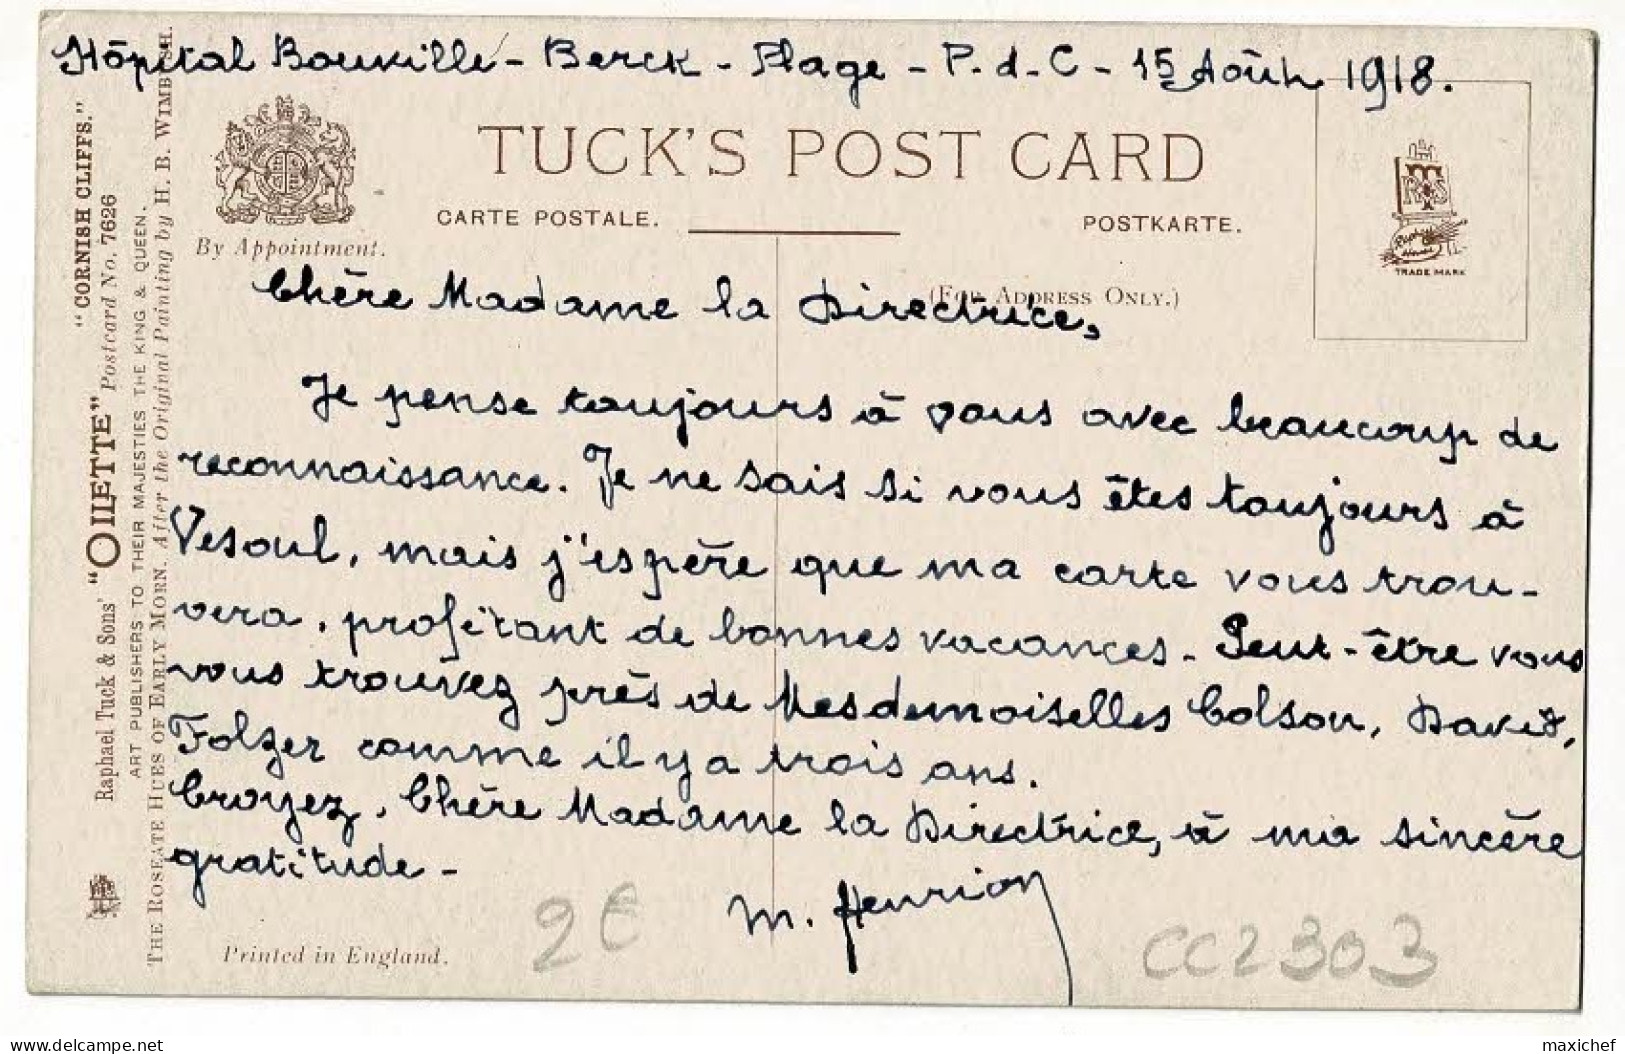 Hôpital Bouville - Berck - Plage - P. d. C - 15 Août 1918.
TUCK'S POST CARD
CARTE POSTALE.
POSTKARTE.
By Appointment.
(FOR ADDRESS ONLY.)
TRADE MARK
Chère Madame la Directrice,
Je pense toujours à vous avec beaucoup de
reconnaissance. Je ne sais si vous êtes toujours à
Vesoul, mais j'espère que ma carte vous trou-
vera, profitant de bonnes vacances. Peut-être vous
vous trouvez près de Mesdemoiselles Colson, David,
Folzer comme il y a trois ans.
Croyez, Chère Madame la Directrice, à ma sincère
gratitude -
M. Henrion
Printed in England.
2€
CC2303
"CORNISH CLIFFS."
Raphael Tuck & Sons' "OILETTE" Postcard No. 7626
ART PUBLISHERS TO THEIR MAJESTIES THE KING & QUEEN.
THE ROSEATE HUES OF EARLY MORN. After the Original Painting by H. B. WIMBUSH.
www.delcampe.net
maxichef